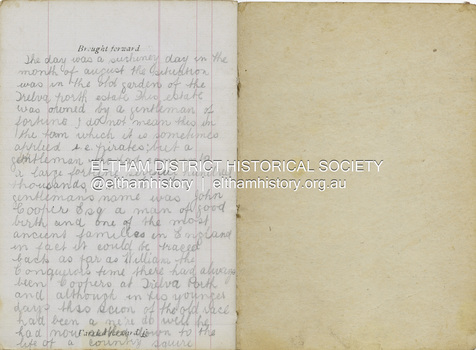 Brought forward
The day was a sushiney day in the
month of august the situation
was in the old garden of the
Trelva Porth estate this estate
was owned by a gentleman of
fortune I do not mean this in
the tom which it is sometimes
applied i.e. pirates but a
gentleman
ELTHAM DISTRICT HISTORICAL SOCIETY
a large for
@elthamhistory | elthamhistory.org.au
thousands
gentlemans name was John
Cooper Esq a man of good
birth and one of the most
ancient families in England
in fact it could be traced
back as far as William the
Conquerors time there had always
been Coopers at Trelva Porth
and although in his younger
days this scion of the old race
had been a ne'er do well he
had now down to the
Carried forward
life of a country squire